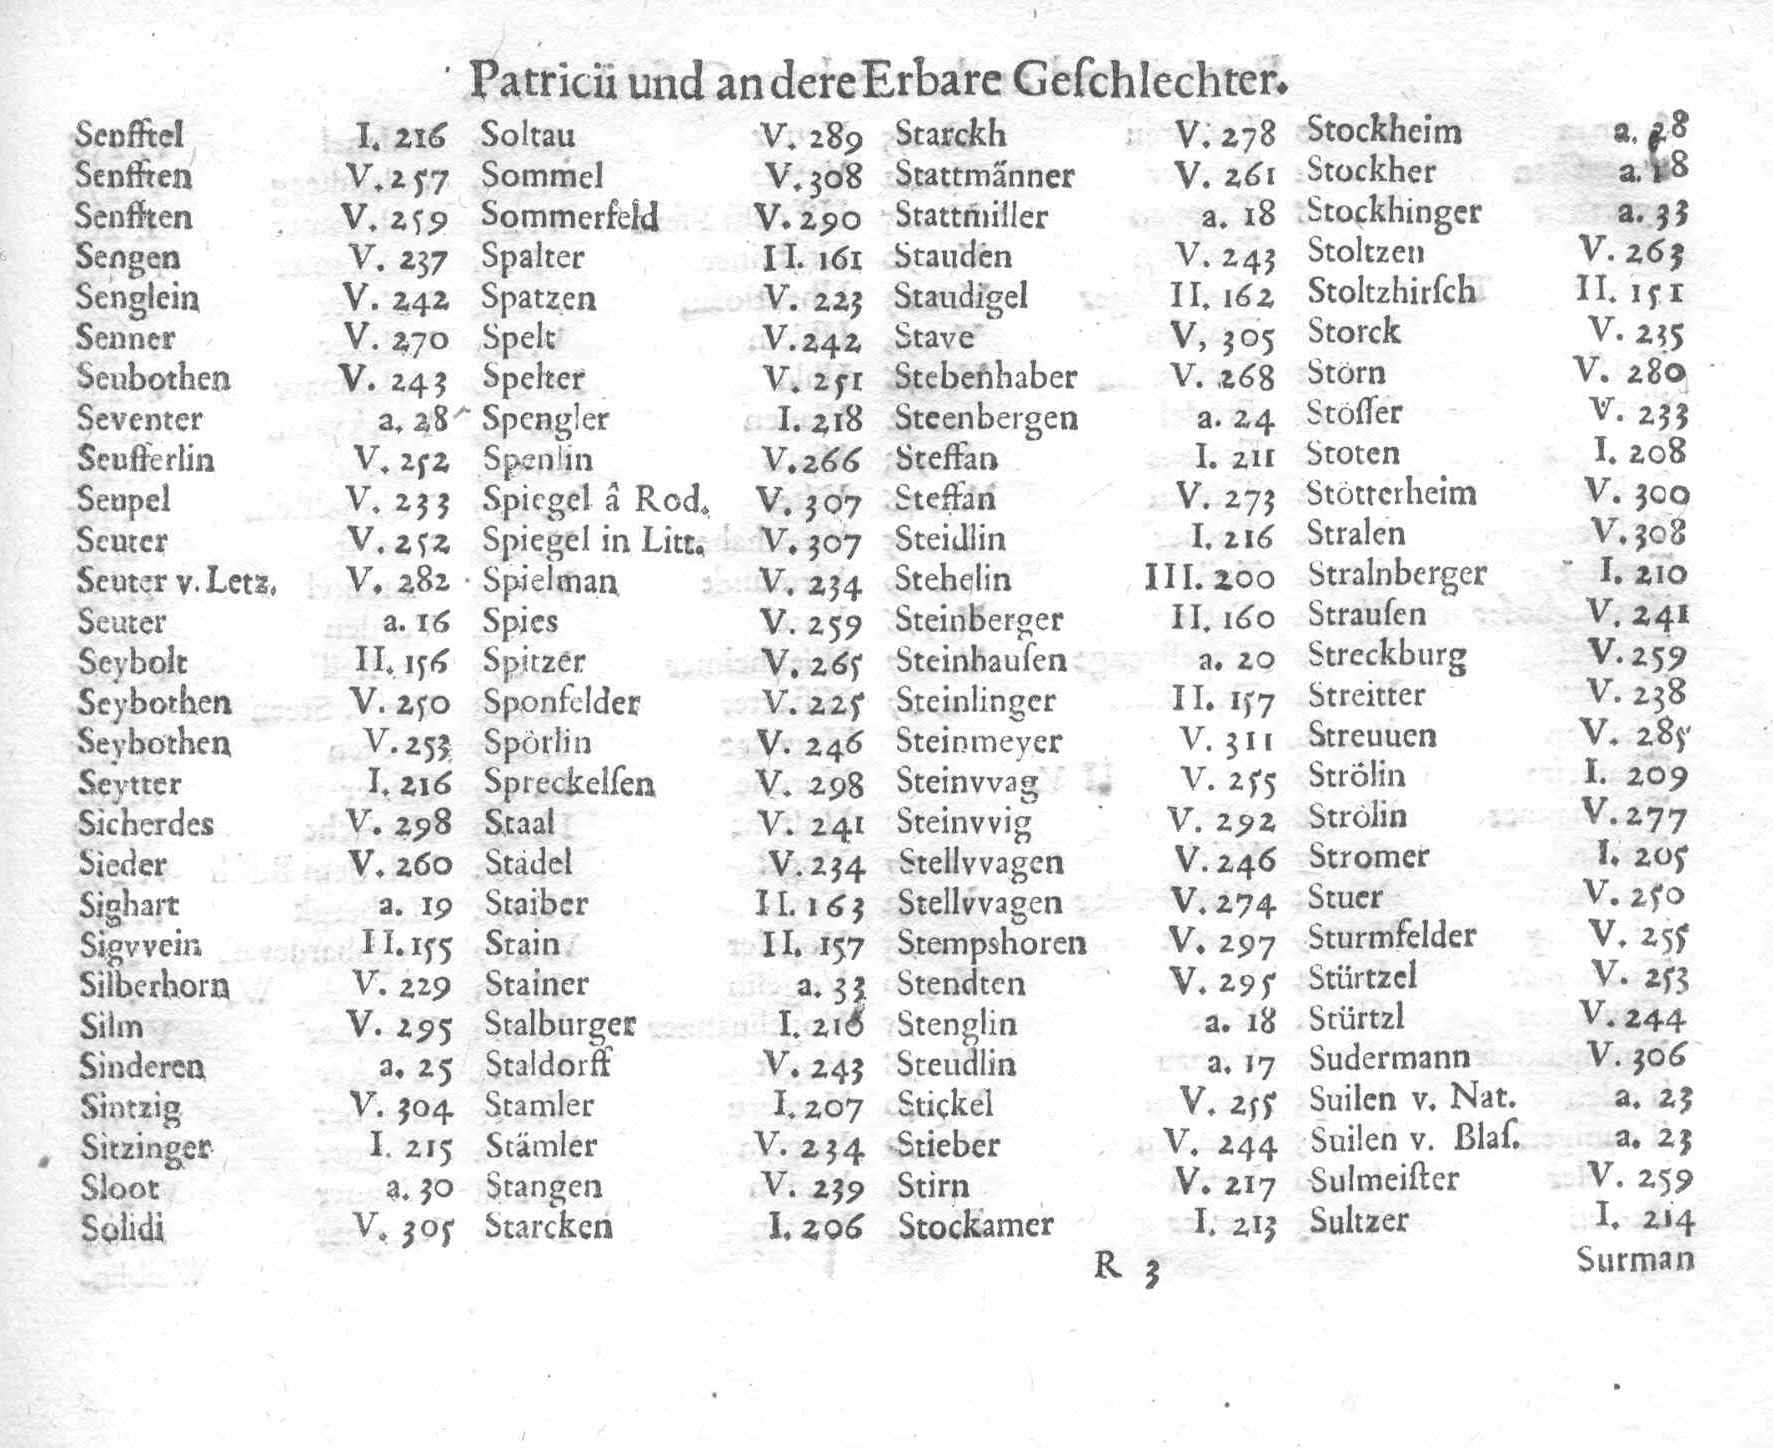 Patricii und andere Erbare Geſchlechter.
Senfftel I. 216
Senfften V. 257
Senfften V. 259
Sengen V. 237
Senglein V. 242
Senner V. 270
Seubothen V. 243
Seventer a. 28
Seufferlin V. 252
Seupel V. 233
Seuter V. 252
Seuter v. Letz. V. 282
Seuter a. 16
Seybolt II. 156
Seybothen V. 250
Seybothen V. 253
Seytter I. 216
Sicherdes V. 298
Sieder V. 260
Sighart a. 19
Sigvvein II. 155
Silberhorn V. 229
Silm V. 295
Sinderen a. 25
Sintzig V. 304
Sitzinger I. 215
Sloot a. 30
Solidi V. 305
Soltau V. 289
Sommel V. 308
Sommerfeld V. 290
Spalter II. 161
Spatzen V. 223
Spelt V. 242
Spelter V. 251
Spengler I. 218
Spenlin V. 266
Spiegel â Rod. V. 307
Spiegel in Litt. V. 307
Spielman V. 234
Spies V. 259
Spitzer V. 265
Sponfelder V. 225
Spörlin V. 246
Spreckelſen V. 298
Staal V. 241
Städel V. 234
Staiber II. 163
Stain II. 157
Stainer a. 33
Stalburger I. 216
Staldorff V. 243
Stamler I. 207
Stämler V. 234
Stangen V. 239
Starcken I. 206
Starckh V. 278
Stattmänner V. 261
Stattmiller a. 18
Stauden V. 243
Staudigel II. 162
Stave V, 305
Stebenhaber V. 268
Steenbergen a. 24
Steffan I. 211
Steffan V. 273
Steidlin I. 216
Stehelin III. 200
Steinberger II. 160
Steinhauſen a. 20
Steinlinger II. 157
Steinmeyer V. 311
Steinvvag V. 255
Steinvvig V. 292
Stellvvagen V. 246
Stellvvagen V. 274
Stempshoren V. 297
Stendten V. 295
Stenglin a. 18
Steudlin a. 17
Stickel V. 255
Stieber V. 244
Stirn V. 217
Stockamer I. 213
Stockheim a. 28
Stockher a. 18
Stockhinger a. 33
Stoltzen V. 263
Stoltzhirſch II. 151
Storck V. 235
Störn V. 280
Stöſſer V. 233
Stoten I. 208
Stötterheim V. 300
Stralen V. 308
Stralnberger I. 210
Strauſen V. 241
Streckburg V. 259
Streitter V. 238
Streuuen V. 285
Strölin I. 209
Strölin V. 277
Stromer I. 205
Stuer V. 250
Sturmfelder V. 255
Stürtzel V. 253
Stürtzl V. 244
Sudermann V. 306
Suilen v. Nat. a. 23
Suilen v. Blaſ. a. 23
Sulmeiſter V. 259
Sultzer I. 214
R 3
Surman